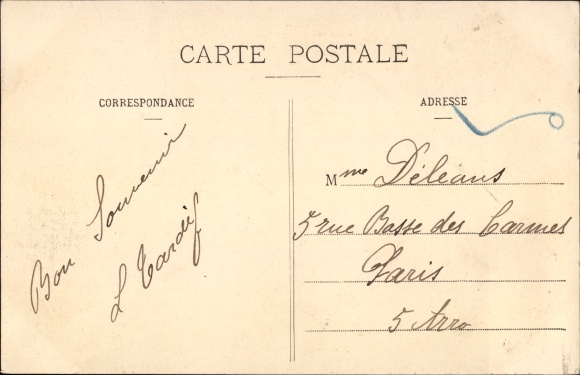 CARTE POSTALE
CORRESPONDANCE
Bon Souvenir
L Tardif
ADRESSE
Mme Déléans
5 rue Basse des Carmes
Paris
5 Arro